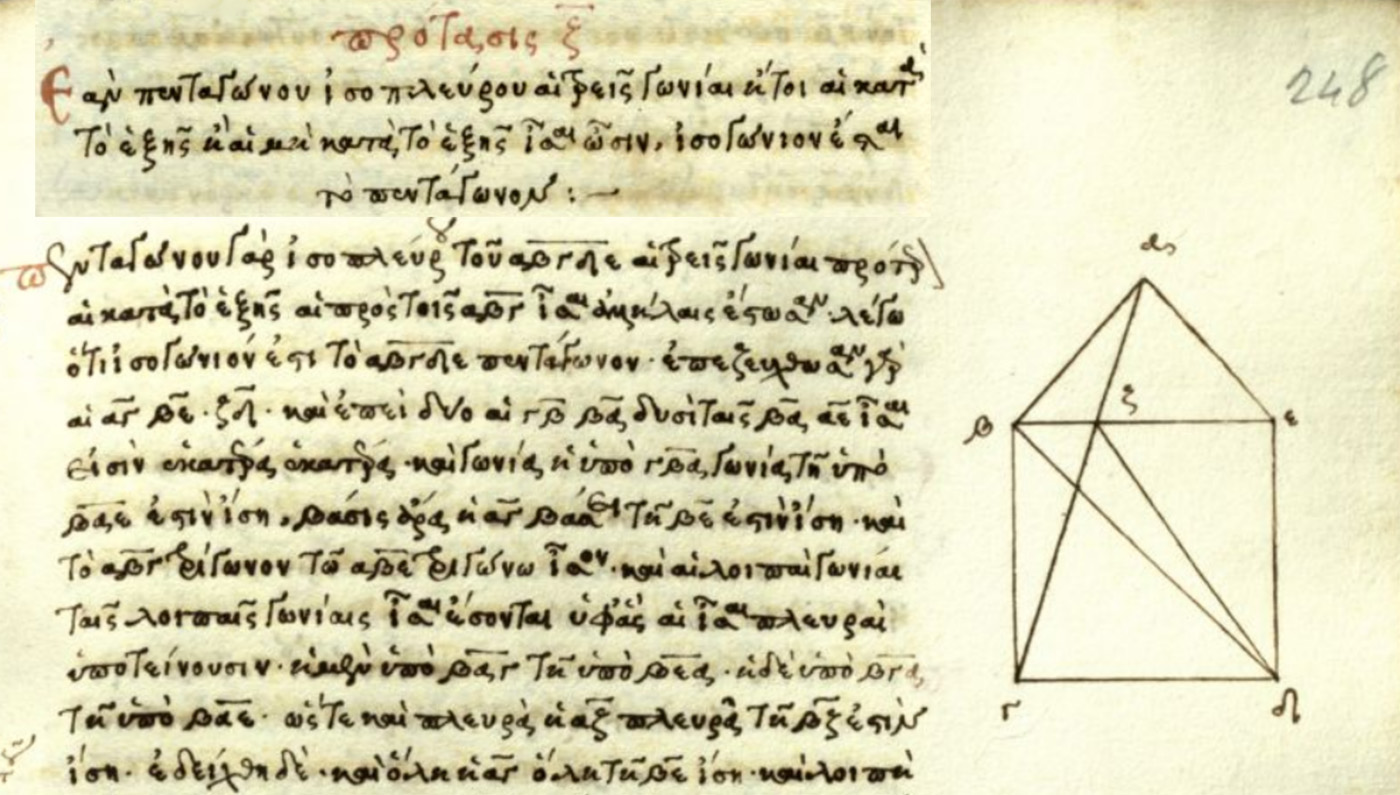 πρότασις ζ
248
Ἐὰν πενταγώνου ἰσοπλεύρου αἱ τρεῖς γωνίαι ἤτοι αἱ κατὰ
τὸ ἑξῆς ἢ αἱ μὴ κατὰ τὸ ἑξῆς ἴσαι ὦσιν, ἰσογώνιον ἔσται
τὸ πεντάγωνον :—
Πενταγώνου γὰρ ἰσοπλεύρου τοῦ αβγδε αἱ τρεῖς γωνίαι πρότερον
αἱ κατὰ τὸ ἑξῆς αἱ πρὸς τοῖς αβγ ἴσαι ἀλλήλαις ἔστωσαν· λέγω
ὅτι ἰσογώνιόν ἐστι τὸ αβγδε πεντάγωνον· ἐπεζεύχθωσαν γὰρ
αἱ αγ βε· ζδ· καὶ ἐπεὶ δύο αἱ γβ βα δυσὶ ταῖς βα αε ἴσαι
εἰσὶν ἑκατέρα ἑκατέρα· καὶ γωνία ἡ ὑπὸ γβα γωνία τῆ ὑπὸ
βαε ἐστὶν ἴση, βάσις ἄρα ἡ αγ βάσει τῆ βε ἐστὶν ἴση· καὶ
τὸ αβγ τρίγωνον τῶ αβε τριγώνω ἴσον· καὶ αἱ λοιπαὶ γωνίαι
ταῖς λοιπαῖς γωνίαις ἴσαι ἔσονται ὑφ' ἃς αἱ ἴσαι πλευραὶ
ὑποτείνουσιν· ἡ μὲν ὑπὸ βαγ τῆ ὑπὸ βεα· ἡ δὲ ὑπὸ βγα
τῆ ὑπὸ βαε· ὥστε καὶ πλευρὰ ἡ αζ πλευρᾶ τῆ βζ ἐστὶν
ἴση· ἐδείχθη δὲ· καὶ ὅλη ἡ αγ ὅλη τῆ βε ἴση· καὶ λοιπὴ
α
β
ζ
ε
γ
δ